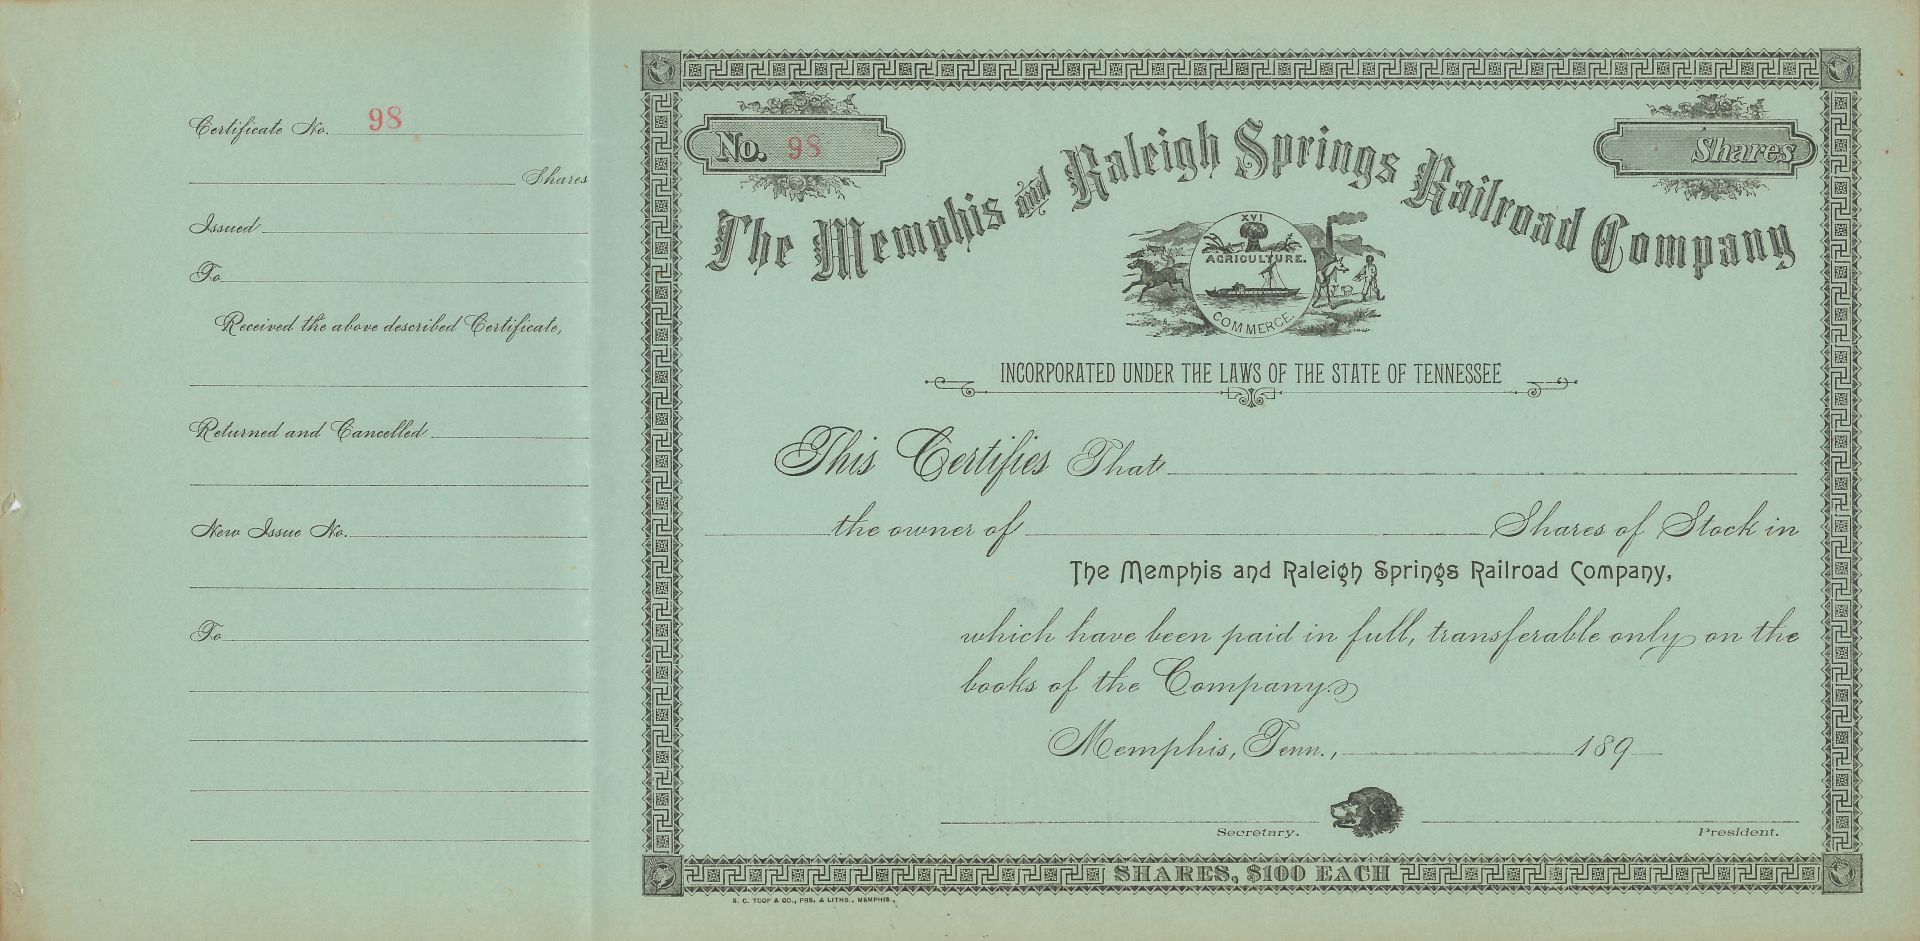 Certificate No. 98
Shares
Issued
To
Received the above described Certificate,
Returned and Cancelled
New Issue No.
To
No. 98
Shares
The Memphis and Raleigh Springs Railroad Company
XVI
AGRICULTURE.
COMMERCE.
INCORPORATED UNDER THE LAWS OF THE STATE OF TENNESSEE
This Certifies That
the owner of Shares of Stock in
The Memphis and Raleigh Springs Railroad Company,
which have been paid in full, transferable only on the
books of the Company.
Memphis, Tenn., 189
Secretary. President.
SHARES, $100 EACH
S. C. TOOF & CO., PRS. & LITHS., MEMPHIS.